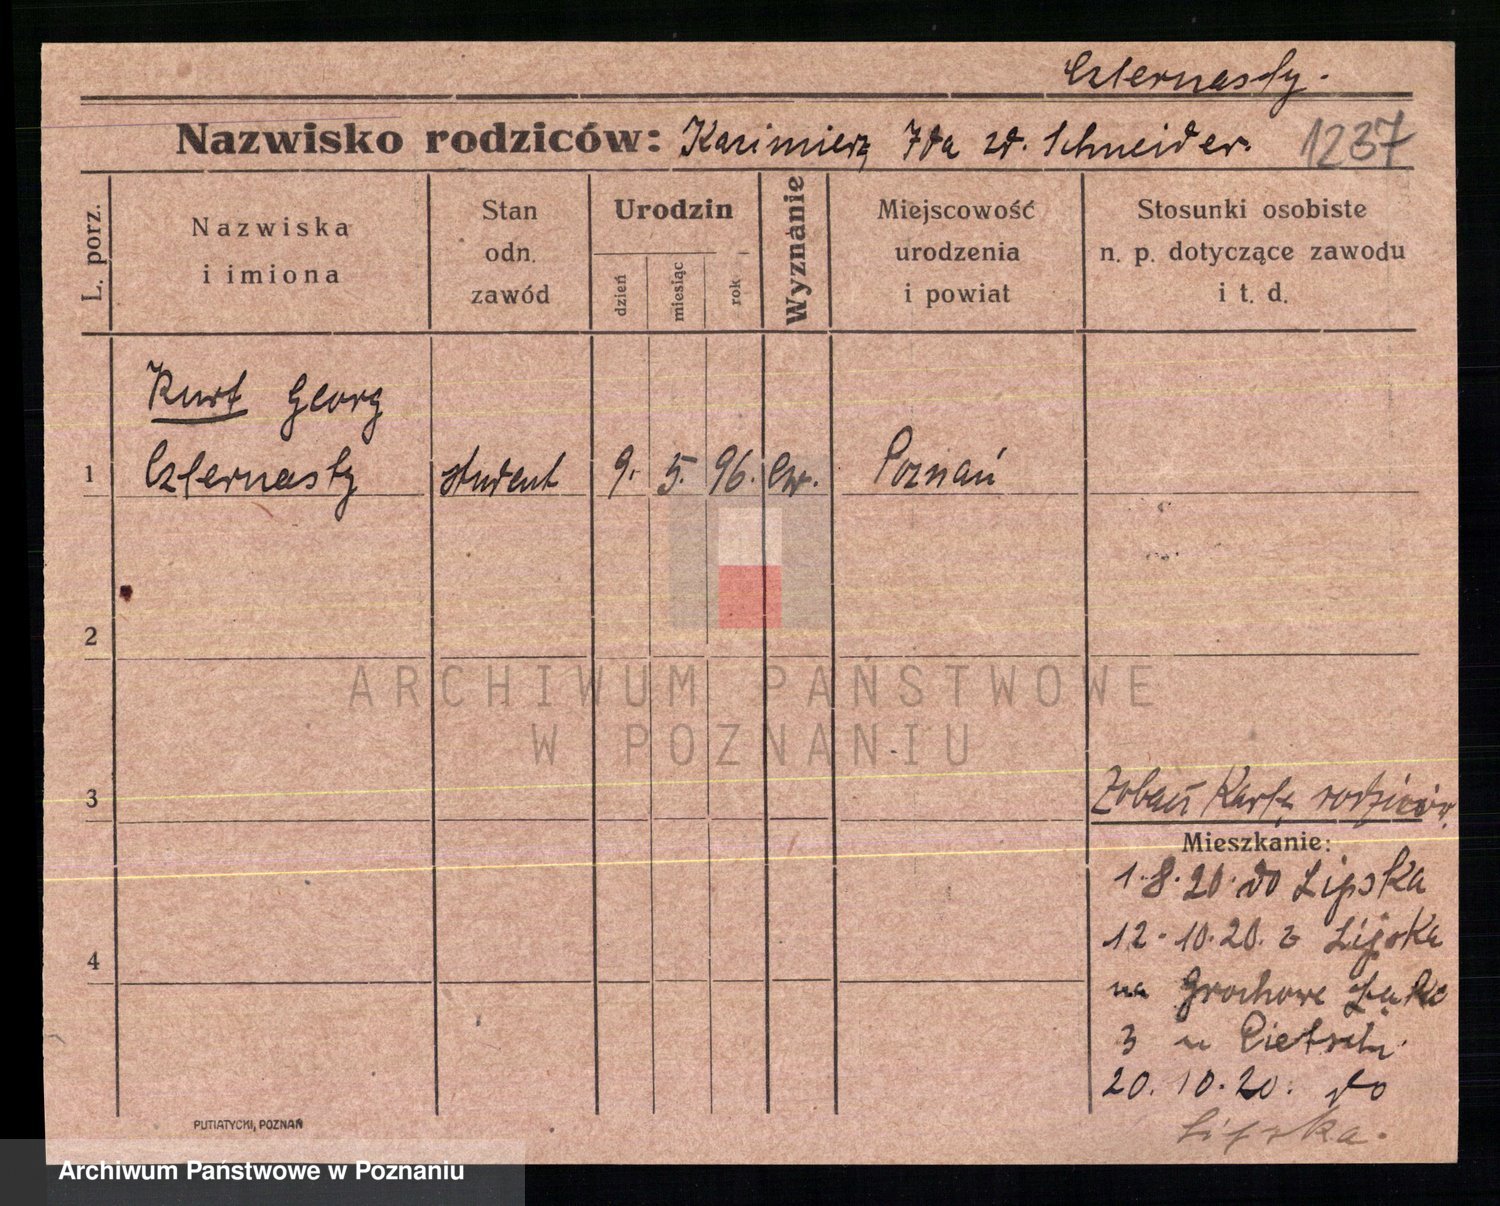 Czternasty.
Nazwisko rodziców: Kazimierz Ida zd. Schneider. 1237
L. porz.
Nazwiska i imiona
Stan odn. zawód
Urodzin
dzień
miesiąc
rok
Wyznanie
Miejscowość urodzenia i powiat
Stosunki osobiste n. p. dotyczące zawodu i t. d.
Kurt Georg
1 Czternasty student 9. 5. 96. Ew. Poznań
2
ARCHIWUM PAŃSTWOWE
W POZNANIU
3
Zobacz Kartę rodziców.
Mieszkanie:
1.8.20. do Lipska
12.10.20. z Lipska
4
na Grochowe Łąki
3 u
20.10.20. do
Lipska.
PUTIATYCKI, POZNAŃ
Archiwum Państwowe w Poznaniu